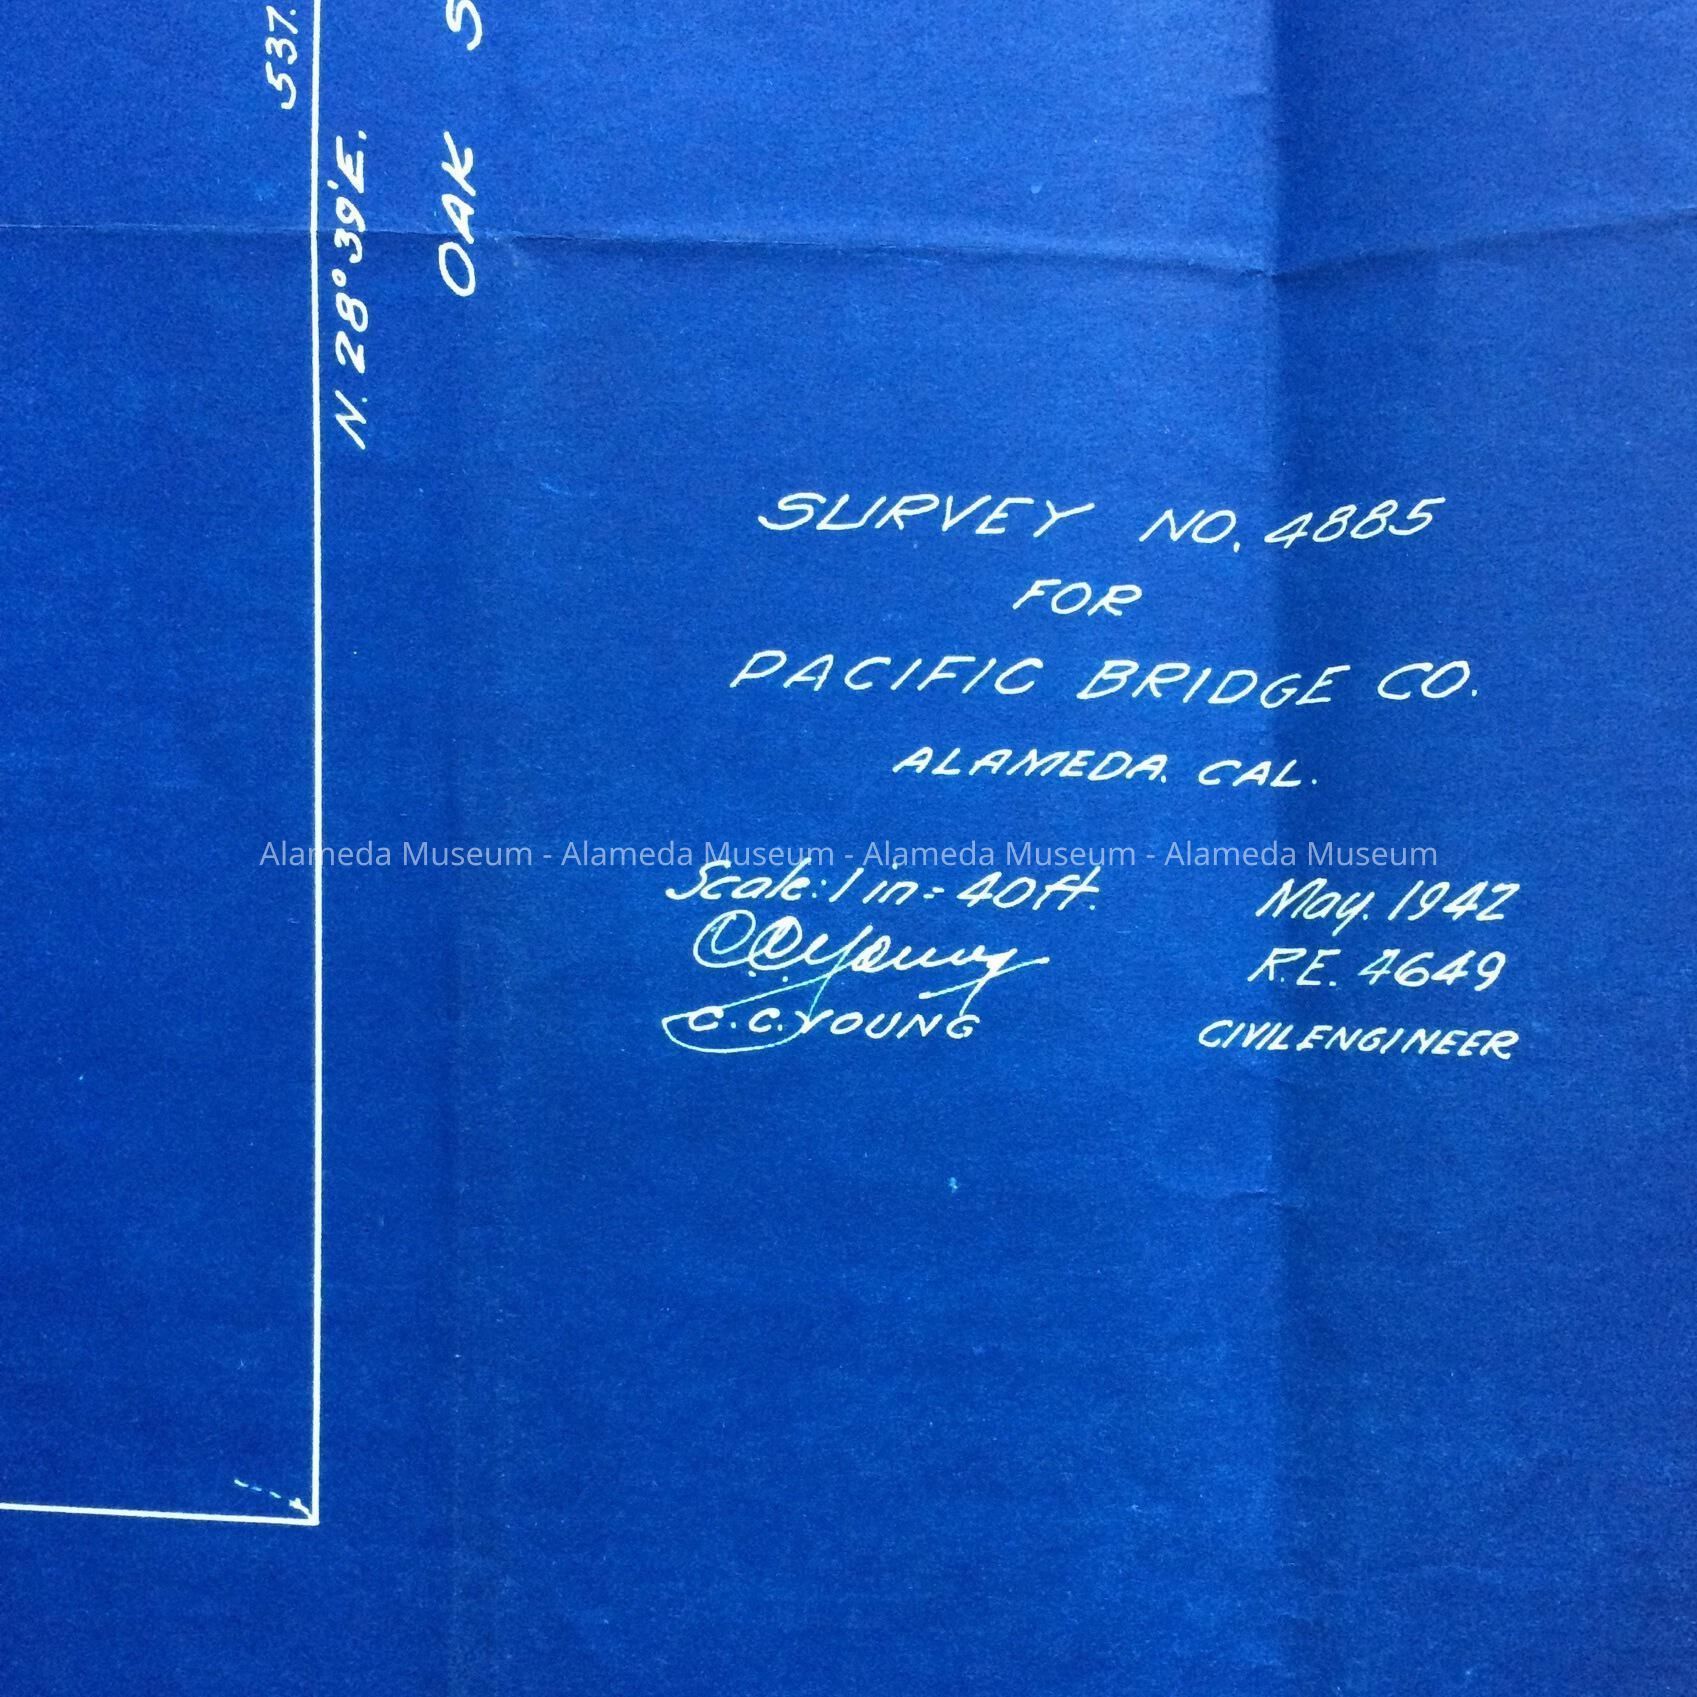 537.
N. 28° 39' E.
OAK S
SURVEY NO. 4885
FOR
PACIFIC BRIDGE CO.
ALAMEDA. CAL.
Alameda Museum - Alameda Museum - Alameda Museum - Alameda Museum
Scale: 1 in = 40 ft. May. 1942
C.C. Young R.E. 4649
C.C. YOUNG CIVIL ENGINEER